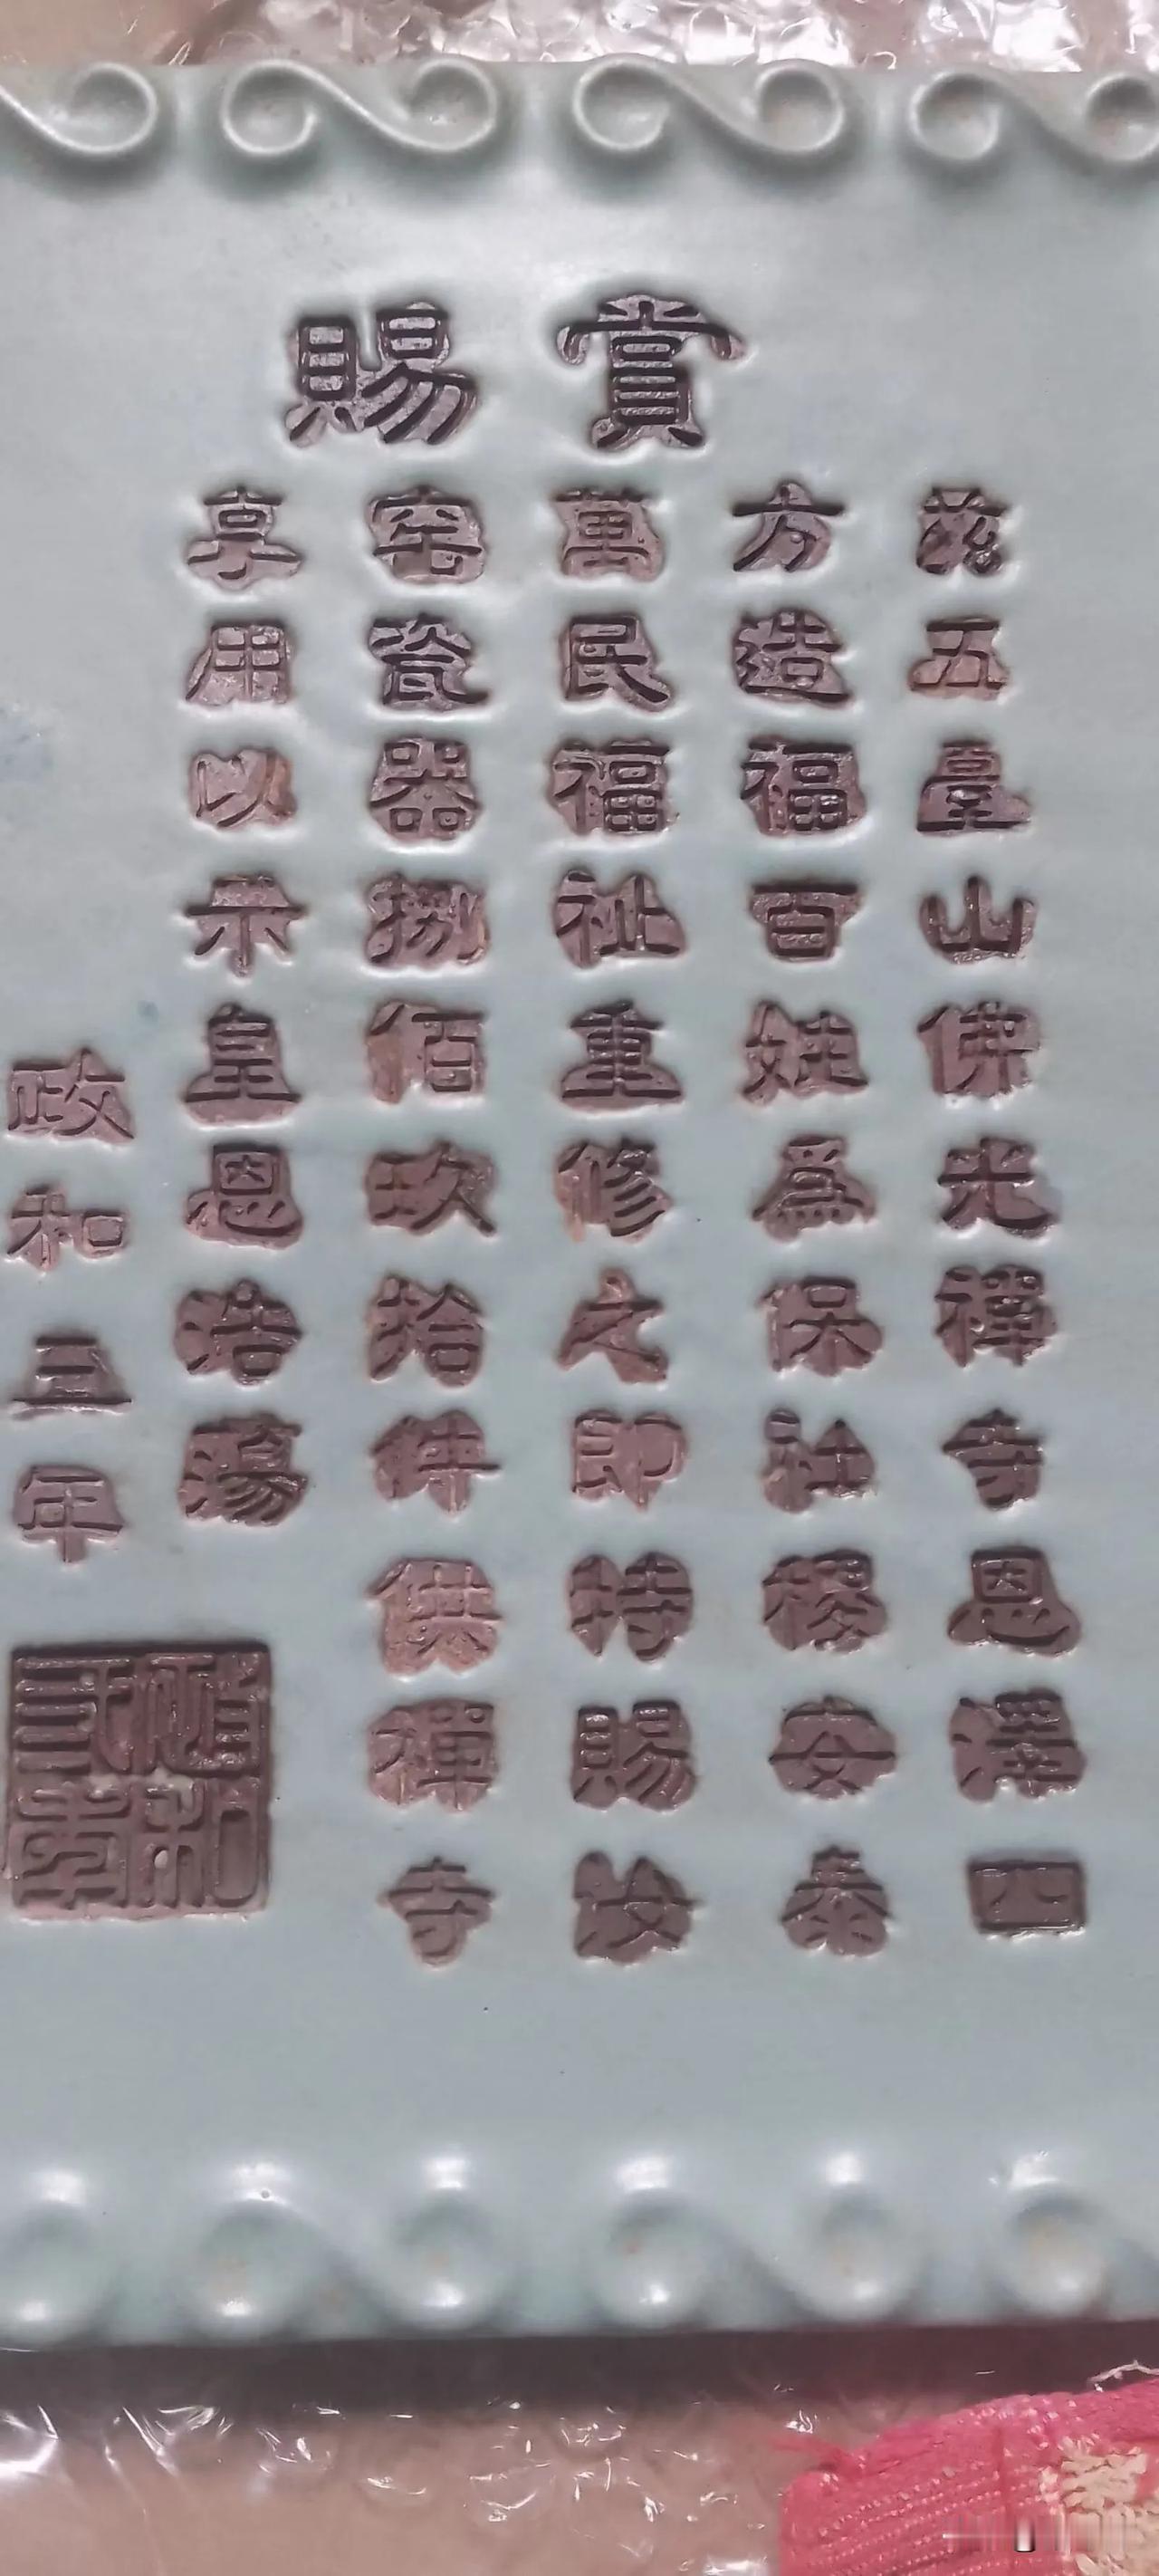 賞賜
茲五臺山佛光禪寺恩澤四
方造福百姓爲保社稷安泰
萬民福祉重修之即特賜汝
窑瓷器捌佰玖拾件供禪寺
享用以示皇恩浩蕩
政和三年